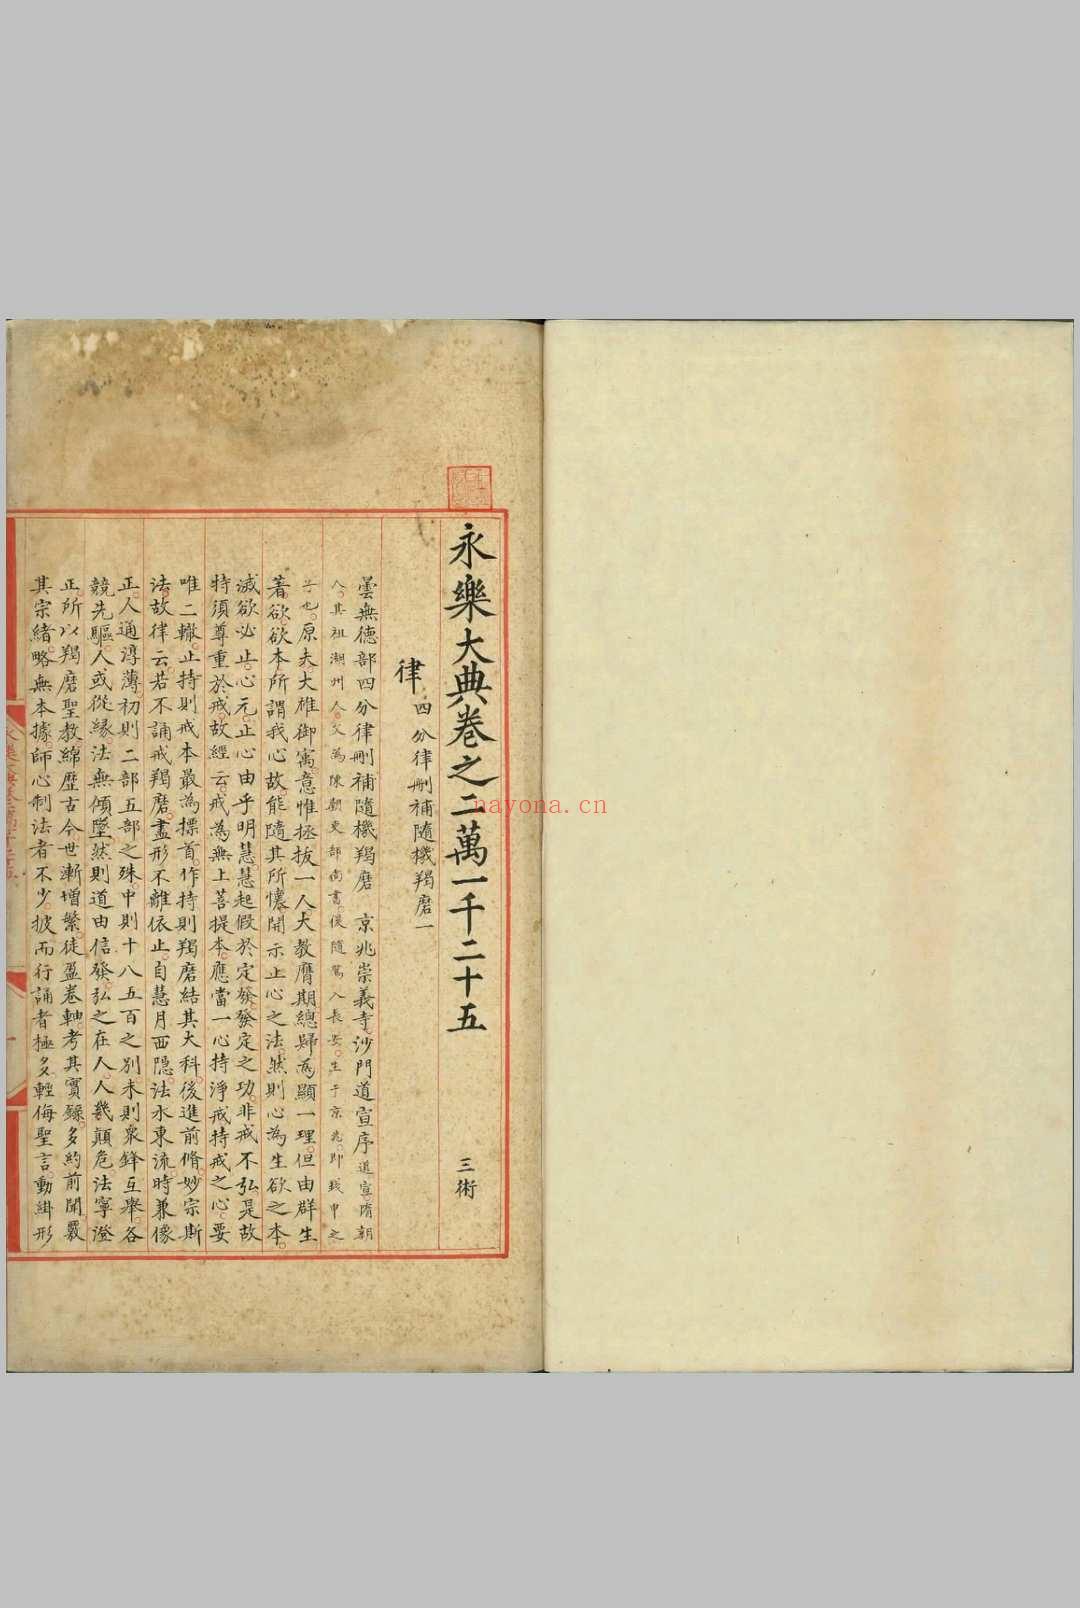 永樂大典卷之二萬一千二十五 三術
律 四分律刪補隨機羯磨一
曇無德部四分律刪補隨機羯磨 京兆崇義寺沙門道宣序 道宣隋朝
人。其祖湖州人。父為陳朝吏部尚書。後隨駕入長安。生于京兆。即錢申之
子也。原夫大雄御寓。意惟拯拔一人。大教膺期。總歸為顯一理。但由群生
著欲。欲本所謂我心。故能隨其所懷。開示止心之法。然則心為生欲之本。
滅欲必止心元。止心由乎明慧。慧起假於定發。發定之功。非戒不弘。是故
特須尊重於戒。故經云。戒為無上菩提本。應當一心持淨戒。持戒之心。要
唯二轍。止持則戒本最為標首。作持則羯磨結其大科。後進前脩。妙宗斯
法。故律云。若不誦戒羯磨。盡形不離依止。自慧月西隱。法水東流。時兼像
正。人通淳薄。初則二部五部之殊。中則十八五百之別。末則眾鋒互舉。各
競先驅。人或從緣。法無傾墜。然則道由信發。弘之在人。人幾顛危。法寧澄
正。所以羯磨聖教。綿歷古今。世漸增繁。徒盈卷軸。考其實錄。多約前聞。覈
其宗緒。略無本據。師心制法者不少。披而行誦者極多。輕侮聖言。動絓形
nayona.cn